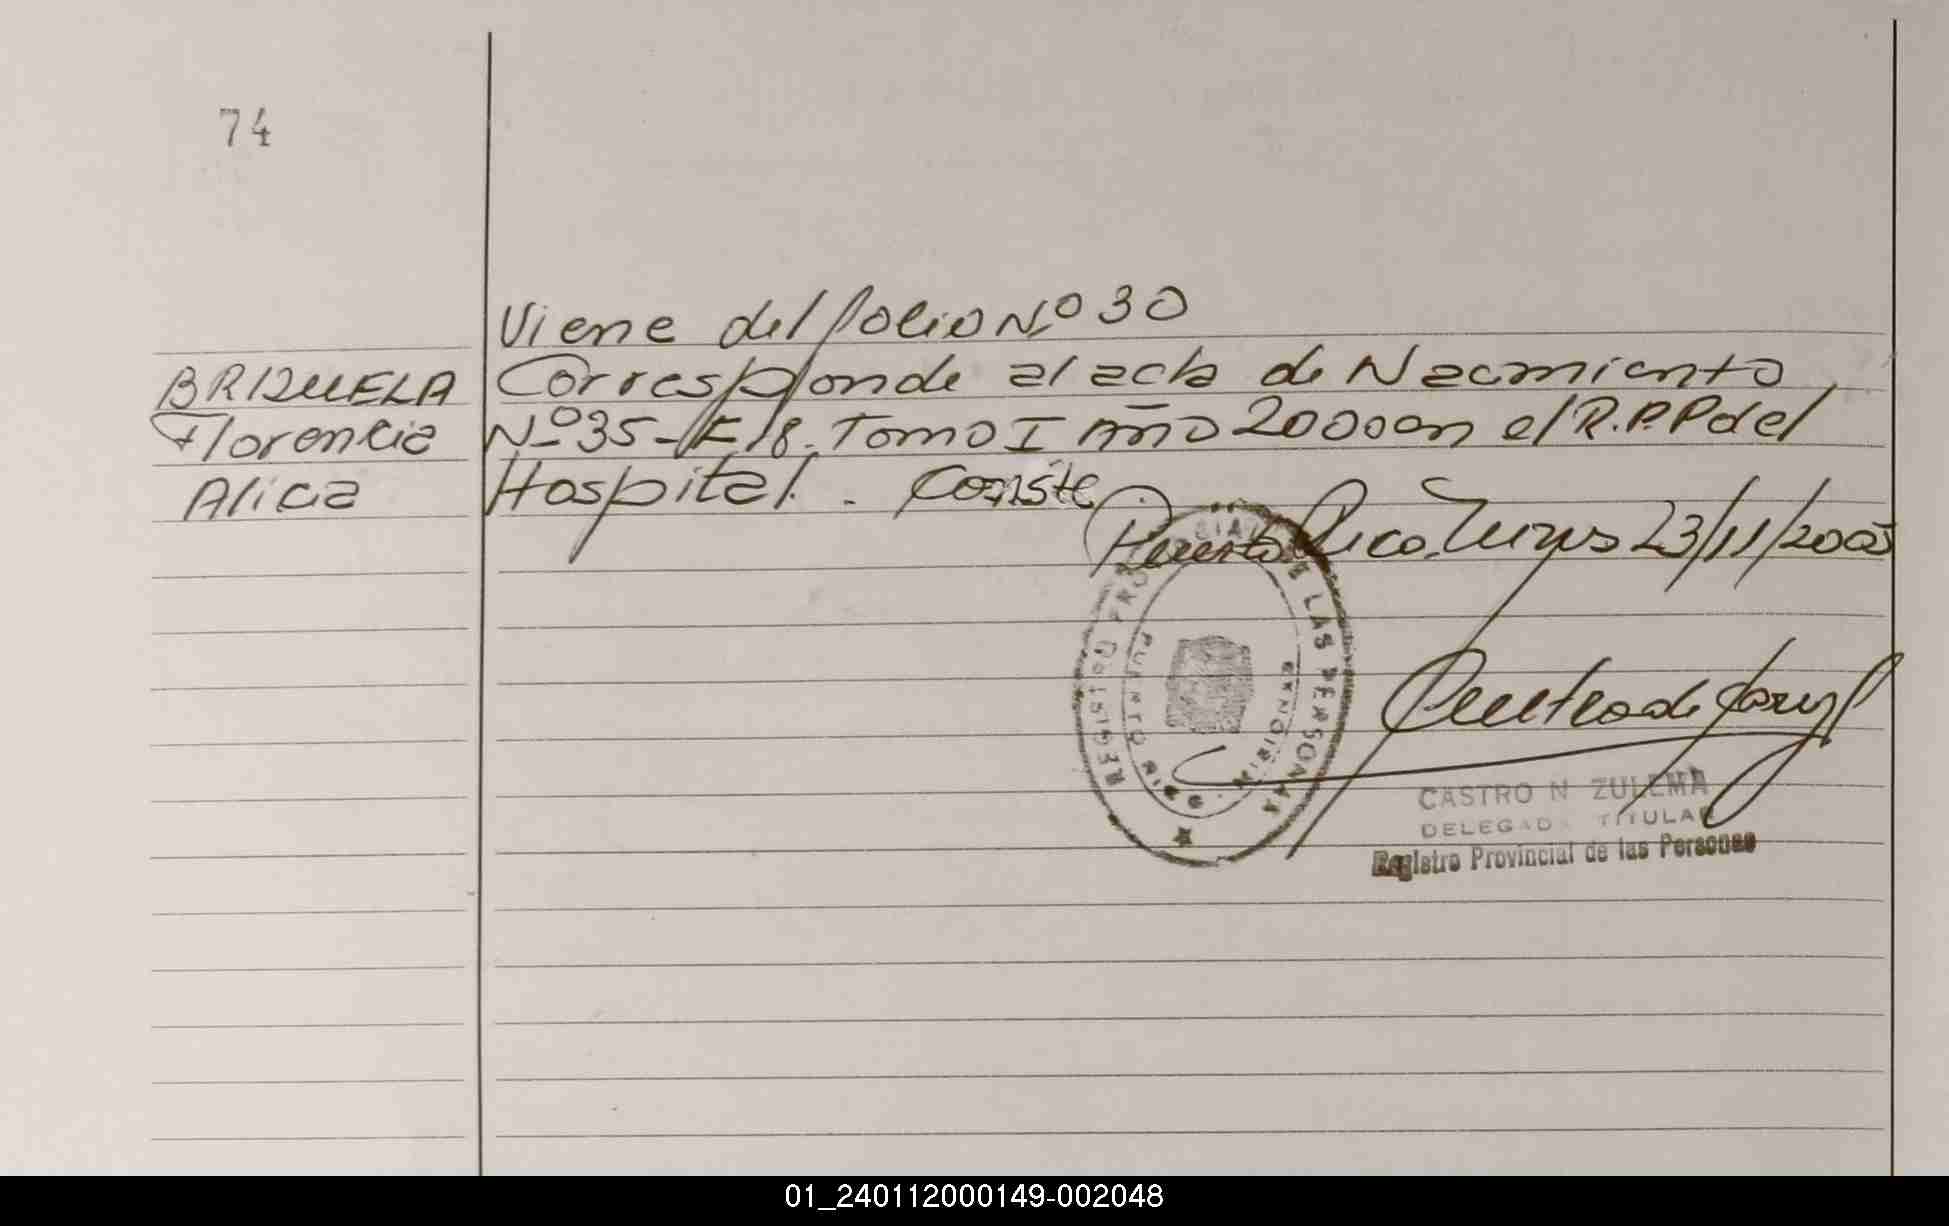 74
Viene del folio Nº 30
BRIZUELA Corresponde al acta de Nacimiento
Florencia Nº 35 - F 18. Tomo I Año 2000 en el R.P.P del
Alicia Hospital. - Conste
Puerto Rico, Mnes 23/11/2005
REGISTRO PROVINCIAL DE LAS PERSONAS
PUERTO RICO MISIONES
CASTRO N ZULEMA
DELEGADA TITULAR
Registro Provincial de las Personas
01_240112000149-002048